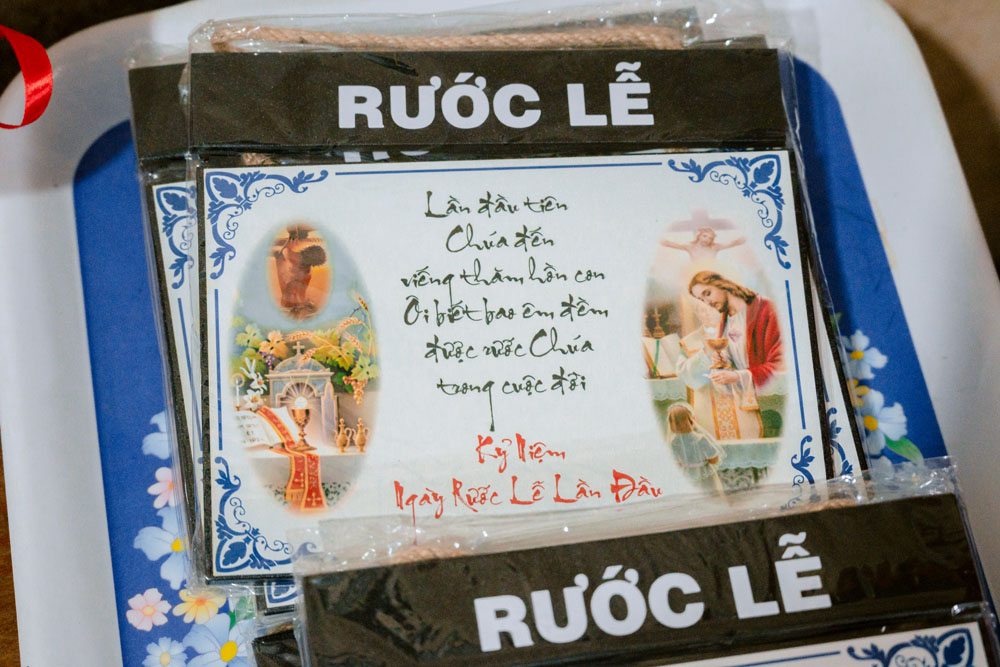 RƯỚC LỄ
Lần đầu tiên
Chúa đến
viếng thăm hồn con
Ôi biết bao êm đềm
được rước Chúa
trong cuộc đời
Kỷ Niệm
Ngày Rước Lễ Lần Đầu
RƯỚC LỄ